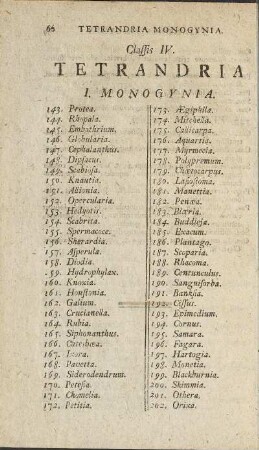 60 TETRANDRIA MONOGYNIA.
Classis IV.
TETRANDRIA
I. MONOGYNIA.
143. Protea.
144. Rhopala.
145. Embothrium.
146. Globularia.
147. Cephalanthus.
148. Dipsacus.
149. Scabiosa.
150. Knautia.
151. Allionia.
152. Opercularia.
153. Hedyotis.
154. Scabrita.
155. Spermacoce.
156. Sherardia.
157. Asperula.
158. Diodia.
159. Hydrophylax.
160. Knoxia.
161. Houstonia.
162. Galium.
163. Crucianella.
164. Rubia.
165. Siphonanthus.
166. Catesbæa.
167. Ixora.
168. Pavetta.
169. Siderodendrum.
170. Petesia.
171. Chomelia.
172. Petitia.
173. Ægiphila.
174. Mitchella.
175. Callicarpa.
176. Aquartia.
177. Myrmecia.
178. Polypremum.
179. Chætocarpus.
180. Lasiostoma.
181. Manettia.
182. Penæa.
183. Blæria.
184. Buddleja.
185. Exacum.
186. Plantago.
187. Scoparia.
188. Rhacoma.
189. Centunculus.
190. Sanguisorba.
191. Banksia.
192. Cissus.
193. Epimedium.
194. Cornus.
195. Samara.
196. Fagara.
197. Hartogia.
198. Monetia.
199. Blackburnia.
200. Skimmia.
201. Othera.
202. Orixa.